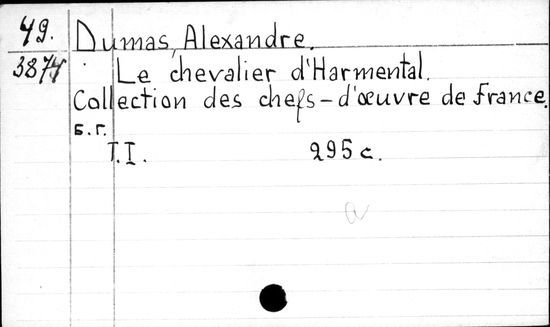 49. Dumas, Alexandre.
3874 Le chevalier d'Harmental.
Collection des chefs-d'œuvre de France.
Б.г.
T.I. 295 с.
a